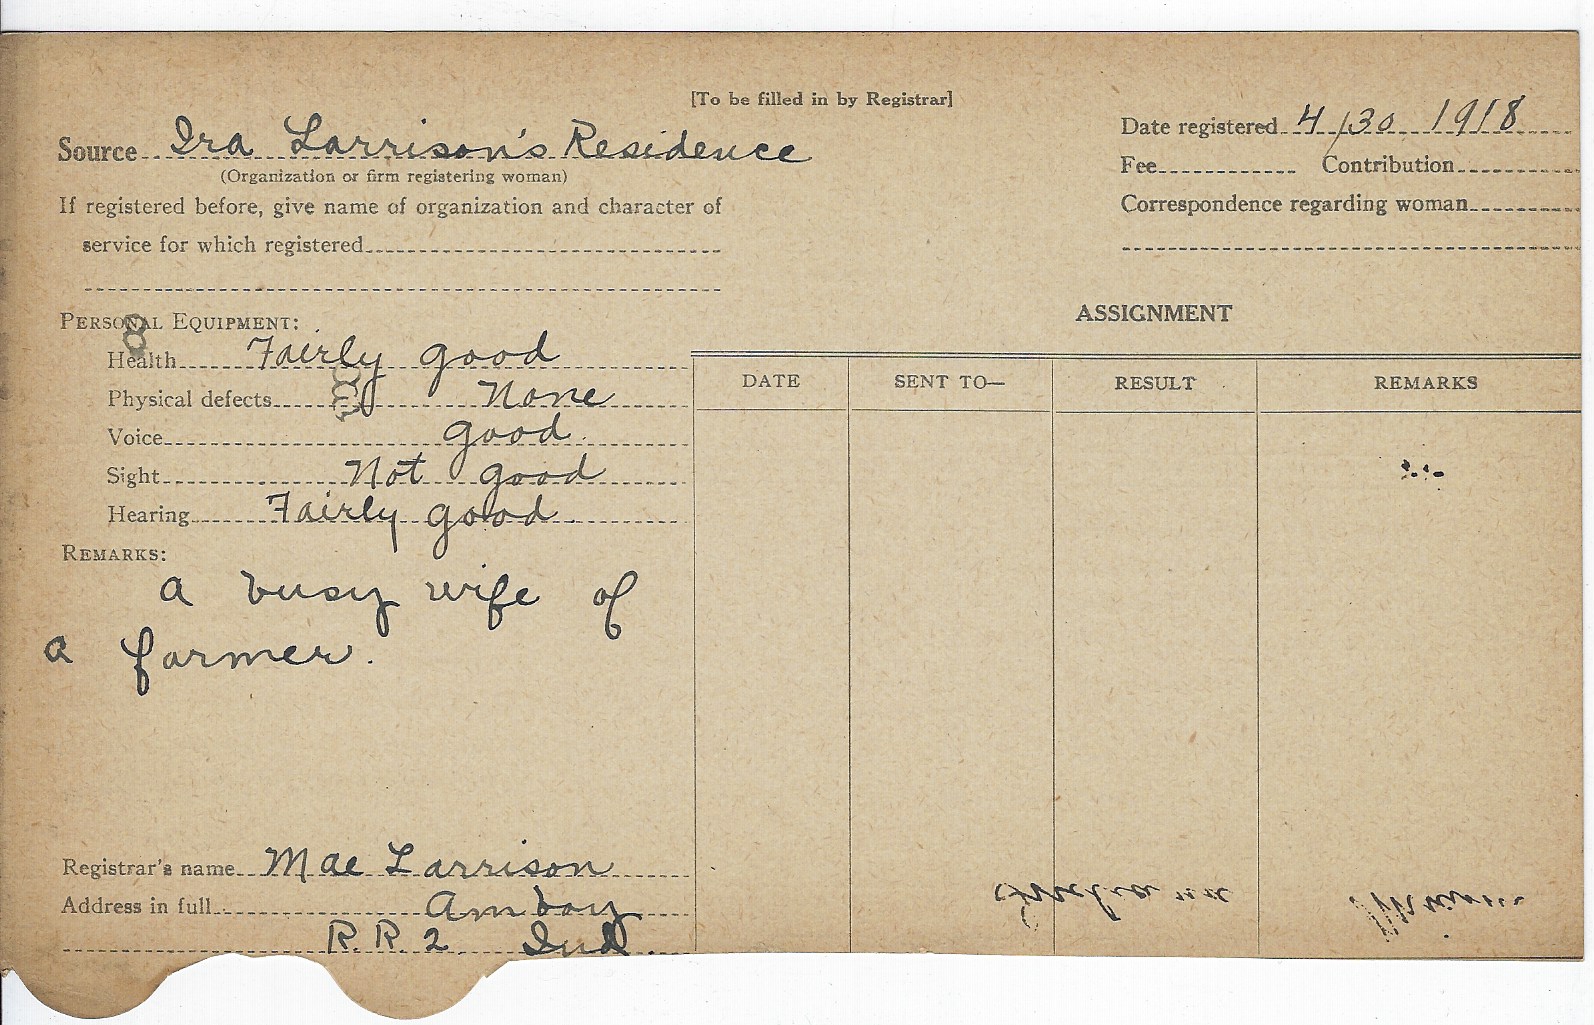 [To be filled in by Registrar]
Source Ira Larrison's Residence
(Organization or firm registering woman)
If registered before, give name of organization and character of
service for which registered
Date registered 4/30 1918
Fee Contribution
Correspondence regarding woman
PERSONAL EQUIPMENT:
Health Fairly good
Physical defects None
Voice good.
Sight Not good
Hearing Fairly good.
REMARKS:
a busy wife of
a farmer.
Registrar's name Mae Larrison
Address in full Amboy
R. R. 2 Ind.
ASSIGNMENT
DATE SENT TO— RESULT REMARKS